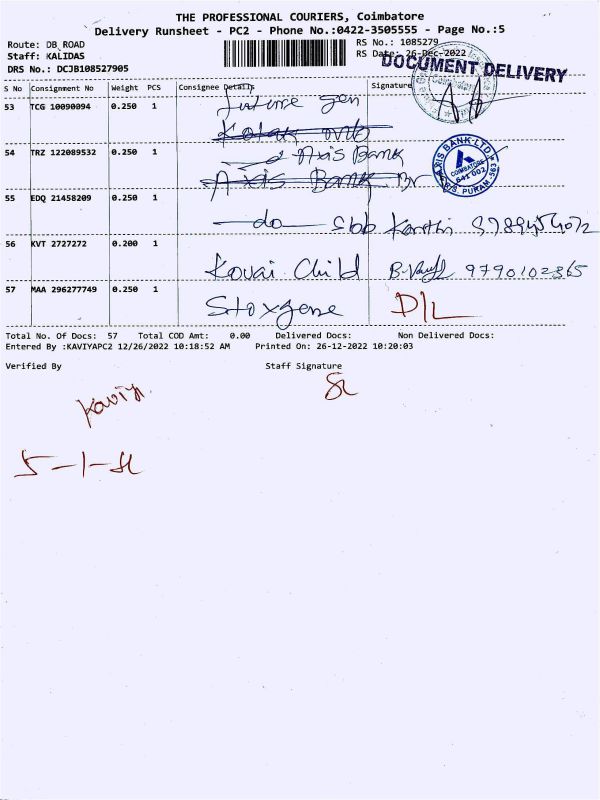 THE PROFESSIONAL COURIERS, Coimbatore
Delivery Runsheet - PC2 - Phone No.:0422-3505555 - Page No.:5
Route: DB ROAD RS No.: 1085279
Staff: KALIDAS RS Date: 26-Dec-2022
DRS No.: DCJB108527905
DOCUMENT DELIVERY
S No Consignment No Weight PCS Consignee Details Signature
53 TCG 10090094 0.250 1 future gen
Kotak
54 TRZ 122089532 0.250 1 Axis Bank
Axis Bank Br
AXIS BANK LTD
COIMBATORE
641 002
R.S. PURAM
55 EDQ 21458209 0.250 1 do
56 KVT 2727272 0.200 1 Kovai Child 9790102865
57 MAA 296277749 0.250 1 Stoxgene D/L
Total No. Of Docs: 57 Total COD Amt: 0.00 Delivered Docs: Non Delivered Docs:
Entered By :KAVIYAPC2 12/26/2022 10:18:52 AM Printed On: 26-12-2022 10:20:03
Verified By Staff Signature